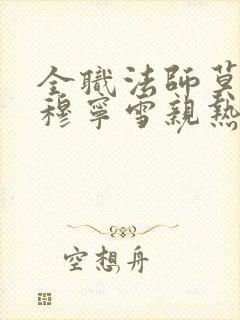 全職法師莫
穆寧雪親熱
空想舟